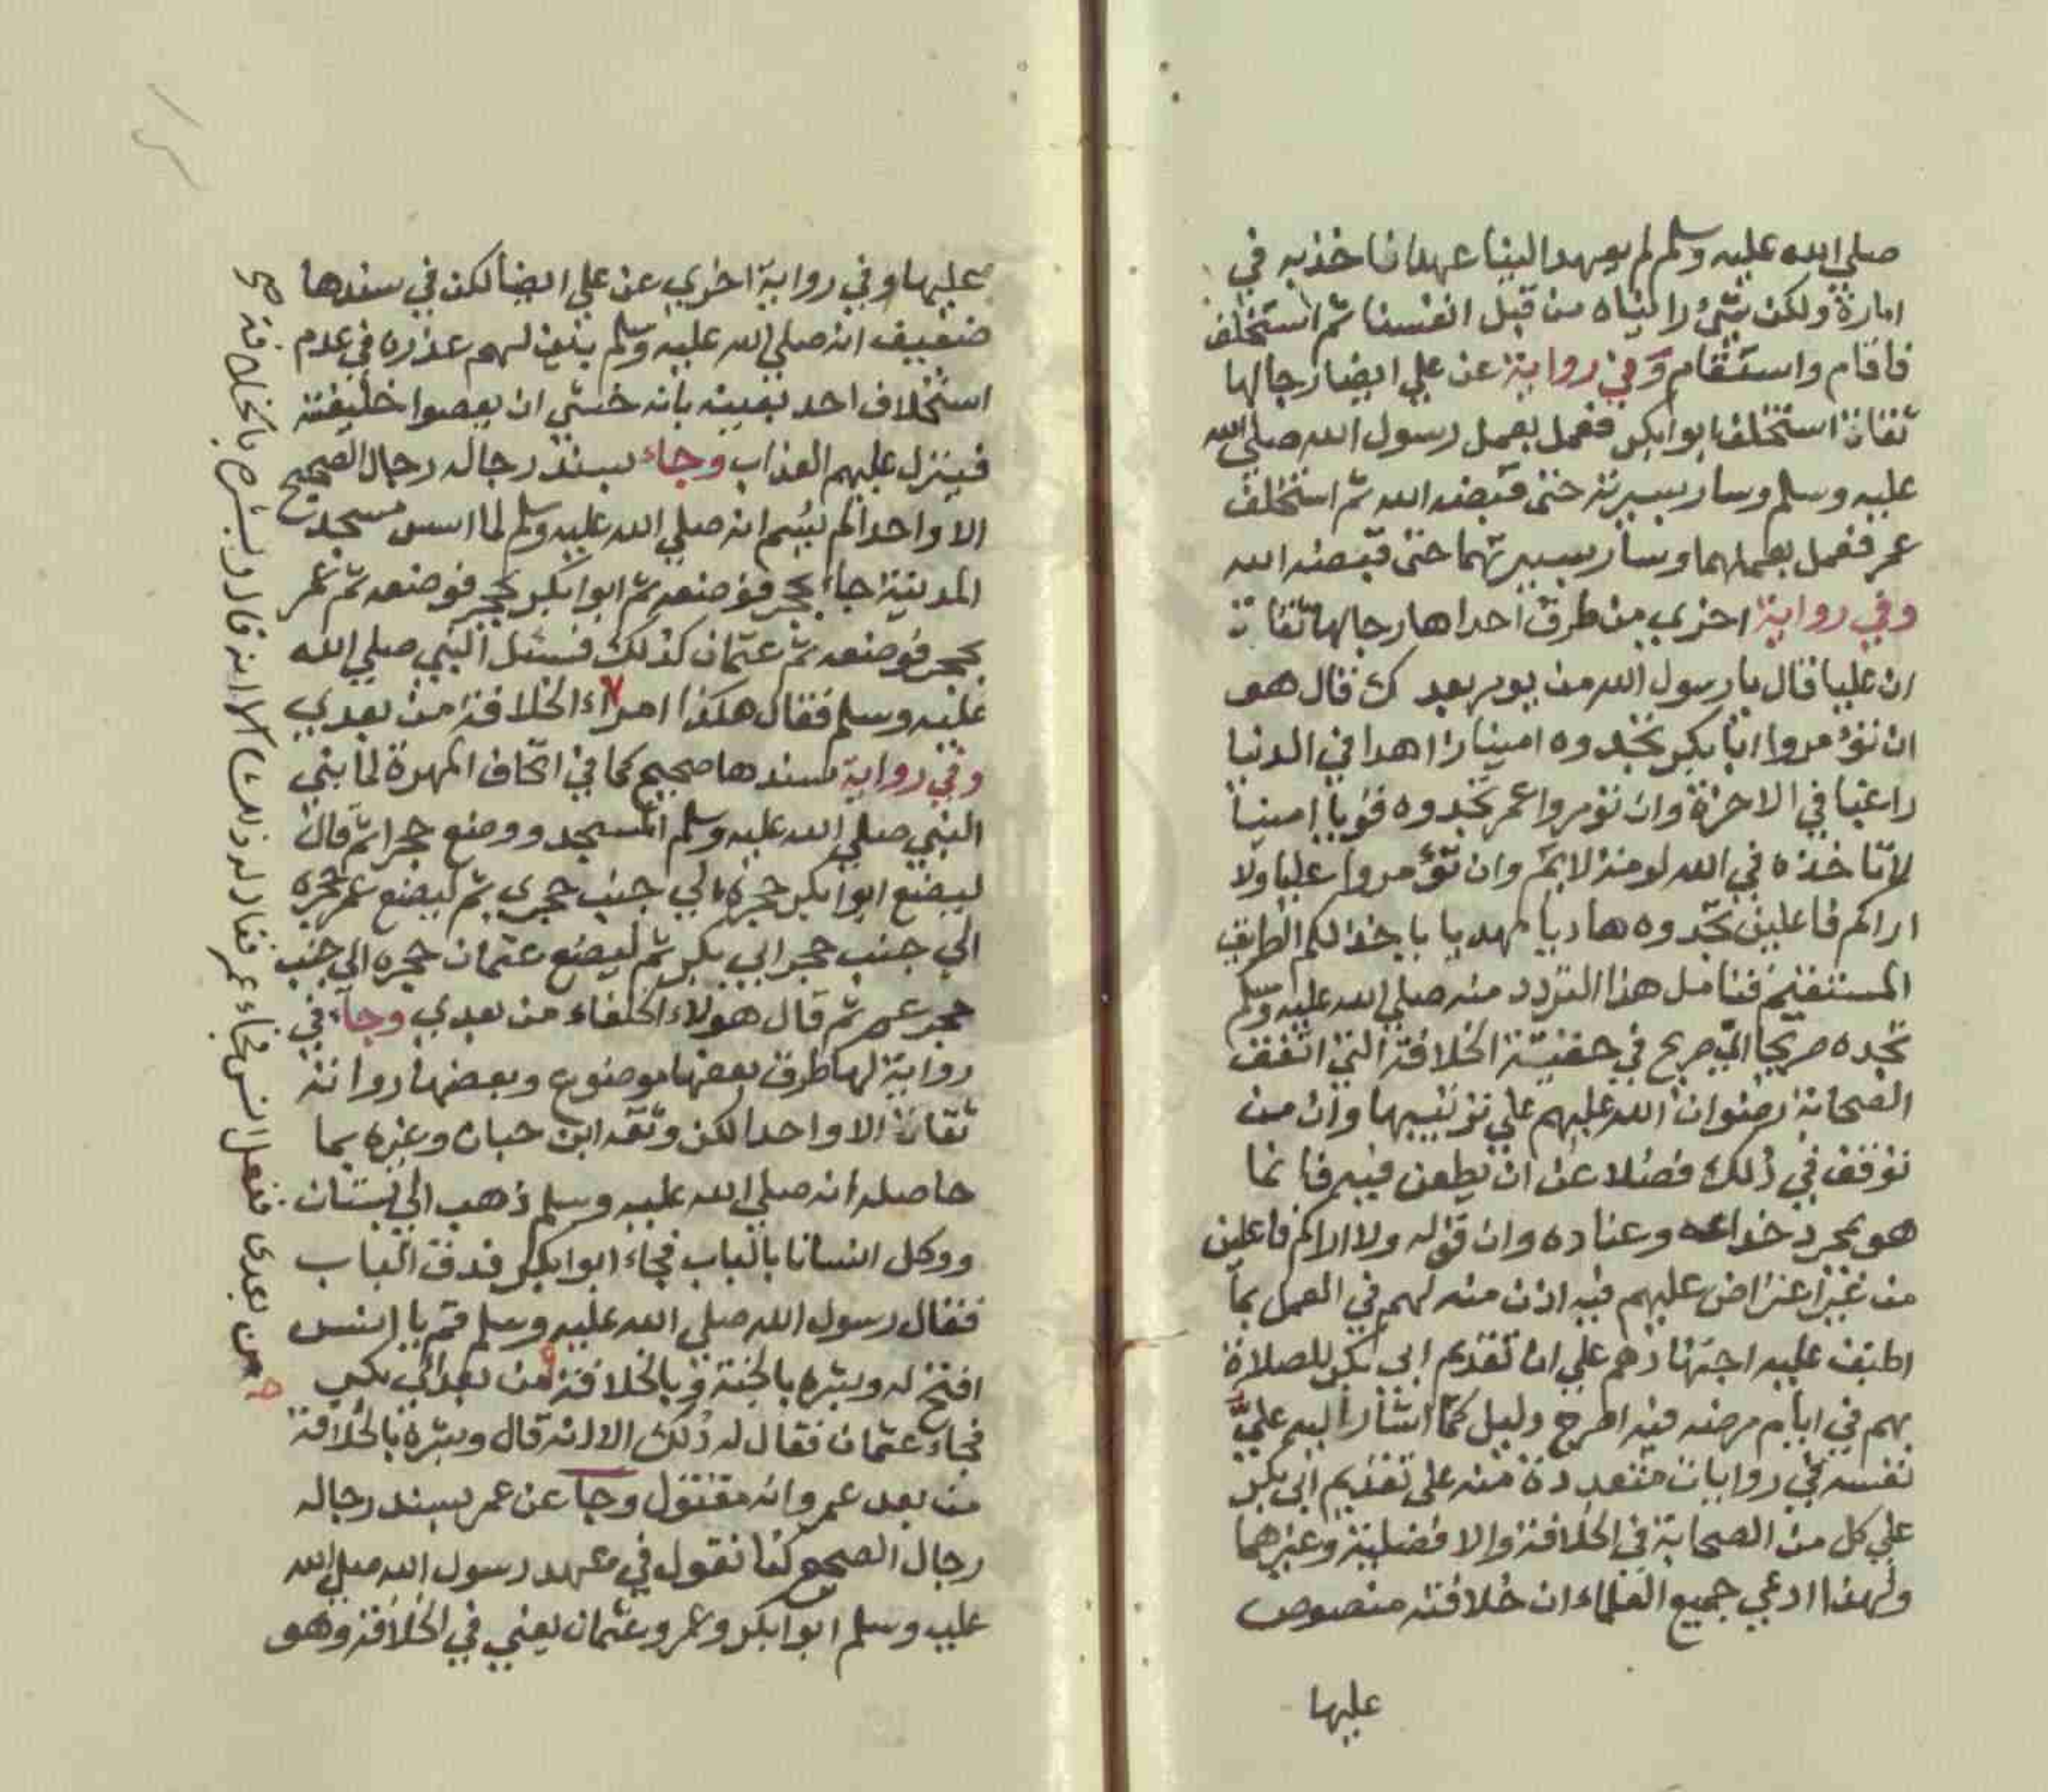 صلي الله عليه وسلم لم يعهد الينا عهدا ناخذ به في
امارة ولكن شئ رايناه من قبل انفسنا ثم استخلف
فاقام واستقام وفي رواية عن علي ايضا رجالها
ثقات استخلف ابوابكر فعمل بعمل رسول الله صلي الله
عليه وسلم وسار بسيرته حتى قبضه الله ثم استخلف
عمر فعمل بعملهما وسار بسيرتهما حتى قبضه الله
وفي رواية اخري من طرق احداها رجالها ثقات
ان عليا قال يا رسول الله من يومر بعدك قال هو
ان تؤمروا ابا بكر تجدوه امينا زاهدا في الدنيا
راغبا في الاخرة وان تؤمروا عمر تجدوه قويا امينا
لا تاخذه في الله لومة لايم وان تؤمروا عليا ولا
اراكم فاعلين تجدوه هاديا مهديا ياخذ لكم الطريق
المستقيم فتامل هذا التردد منه صلي الله عليه وسلم
تجده صريحا اي صريح في حقية الخلافة التي اتفقت
الصحابة رضوان الله عليهم علي ترتيبها وان من
توقف في ذلك فضلا عن ان يطعن فيه فانما
هو بمجرد خداعه وعناده وان قوله ولا اراكم فاعلين
من غير اعتراض عليهم فيه اذن منه لهم في العمل بما
اطبق عليه اجتهادهم علي ان تقديم ابي بكر للصلاة
بهم في ايام مرضه فيه اصرح دليل كما اشار اليه علي
نفسه في روايات متعددة منه على تقديم ابى بكر
علي كل من الصحابة في الخلافة والافضلية وغيرهما
ولهذا ادعي جميع العلماء ان خلافته منصوص
عليها
عليها وفي رواية اخري عن علي ايضا لكن في سندها
ضعيف انه صلي الله عليه وسلم بين لهم عذره في عدم
استخلاف احد بعينه بانه خشي ان يعصوا خليفته
فينزل عليهم العذاب وجاء بسند رجاله رجال الصحيح
الا واحدا لم يسم انه صلي الله عليه وسلم لما اسس مسجد
المدينة جاء بحجر فوضعه ثم ابوابكر بحجر فوضعه ثم عمر
بحجر فوضعه ثم عثمان كذلك فسئل النبي صلي الله
عليه وسلم فقال هكذا امراء الخلافة من بعدي
وفي رواية سندها صحيح كما في اتحاف المهرة لما بني
النبي صلي الله عليه وسلم المسجد ووضع حجرا ثم قال
ليضع ابوابكر حجره الي جنب حجري ثم ليضع عمر حجره
الي جنب حجر ابي بكر ثم ليضع عثمان حجره الي جنب
حجر عمر ثم قال هولاء الخلفاء من بعدي وجاء في
رواية لها طرق بعضها موضوع وبعضها رواته
ثقات الا واحدا لكن وثقه ابن حبان وغيره بما
حاصله انه صلي الله عليه وسلم ذهب الي بستان
ووكل انسانا بالباب فجاء ابوابكر فدق الباب
فقال رسول الله صلي الله عليه وسلم قم يا انس
افتح له وبشره بالجنة وبالخلافة من بعدي
فجاء عثمان فقال له ذلك الا انه قال وبشره بالخلافة
من بعد عمر وانه مقتول وجا عن عمر بسند رجاله
رجال الصحيح كنا نقول في عهد رسول الله صلي الله
عليه وسلم ابوابكر وعمر وعثمان يعني في الخلافة وهو
من بعدى ففعل انس فجاء عمر فقال له ذلك الا انه قال وبشره بالخلافة